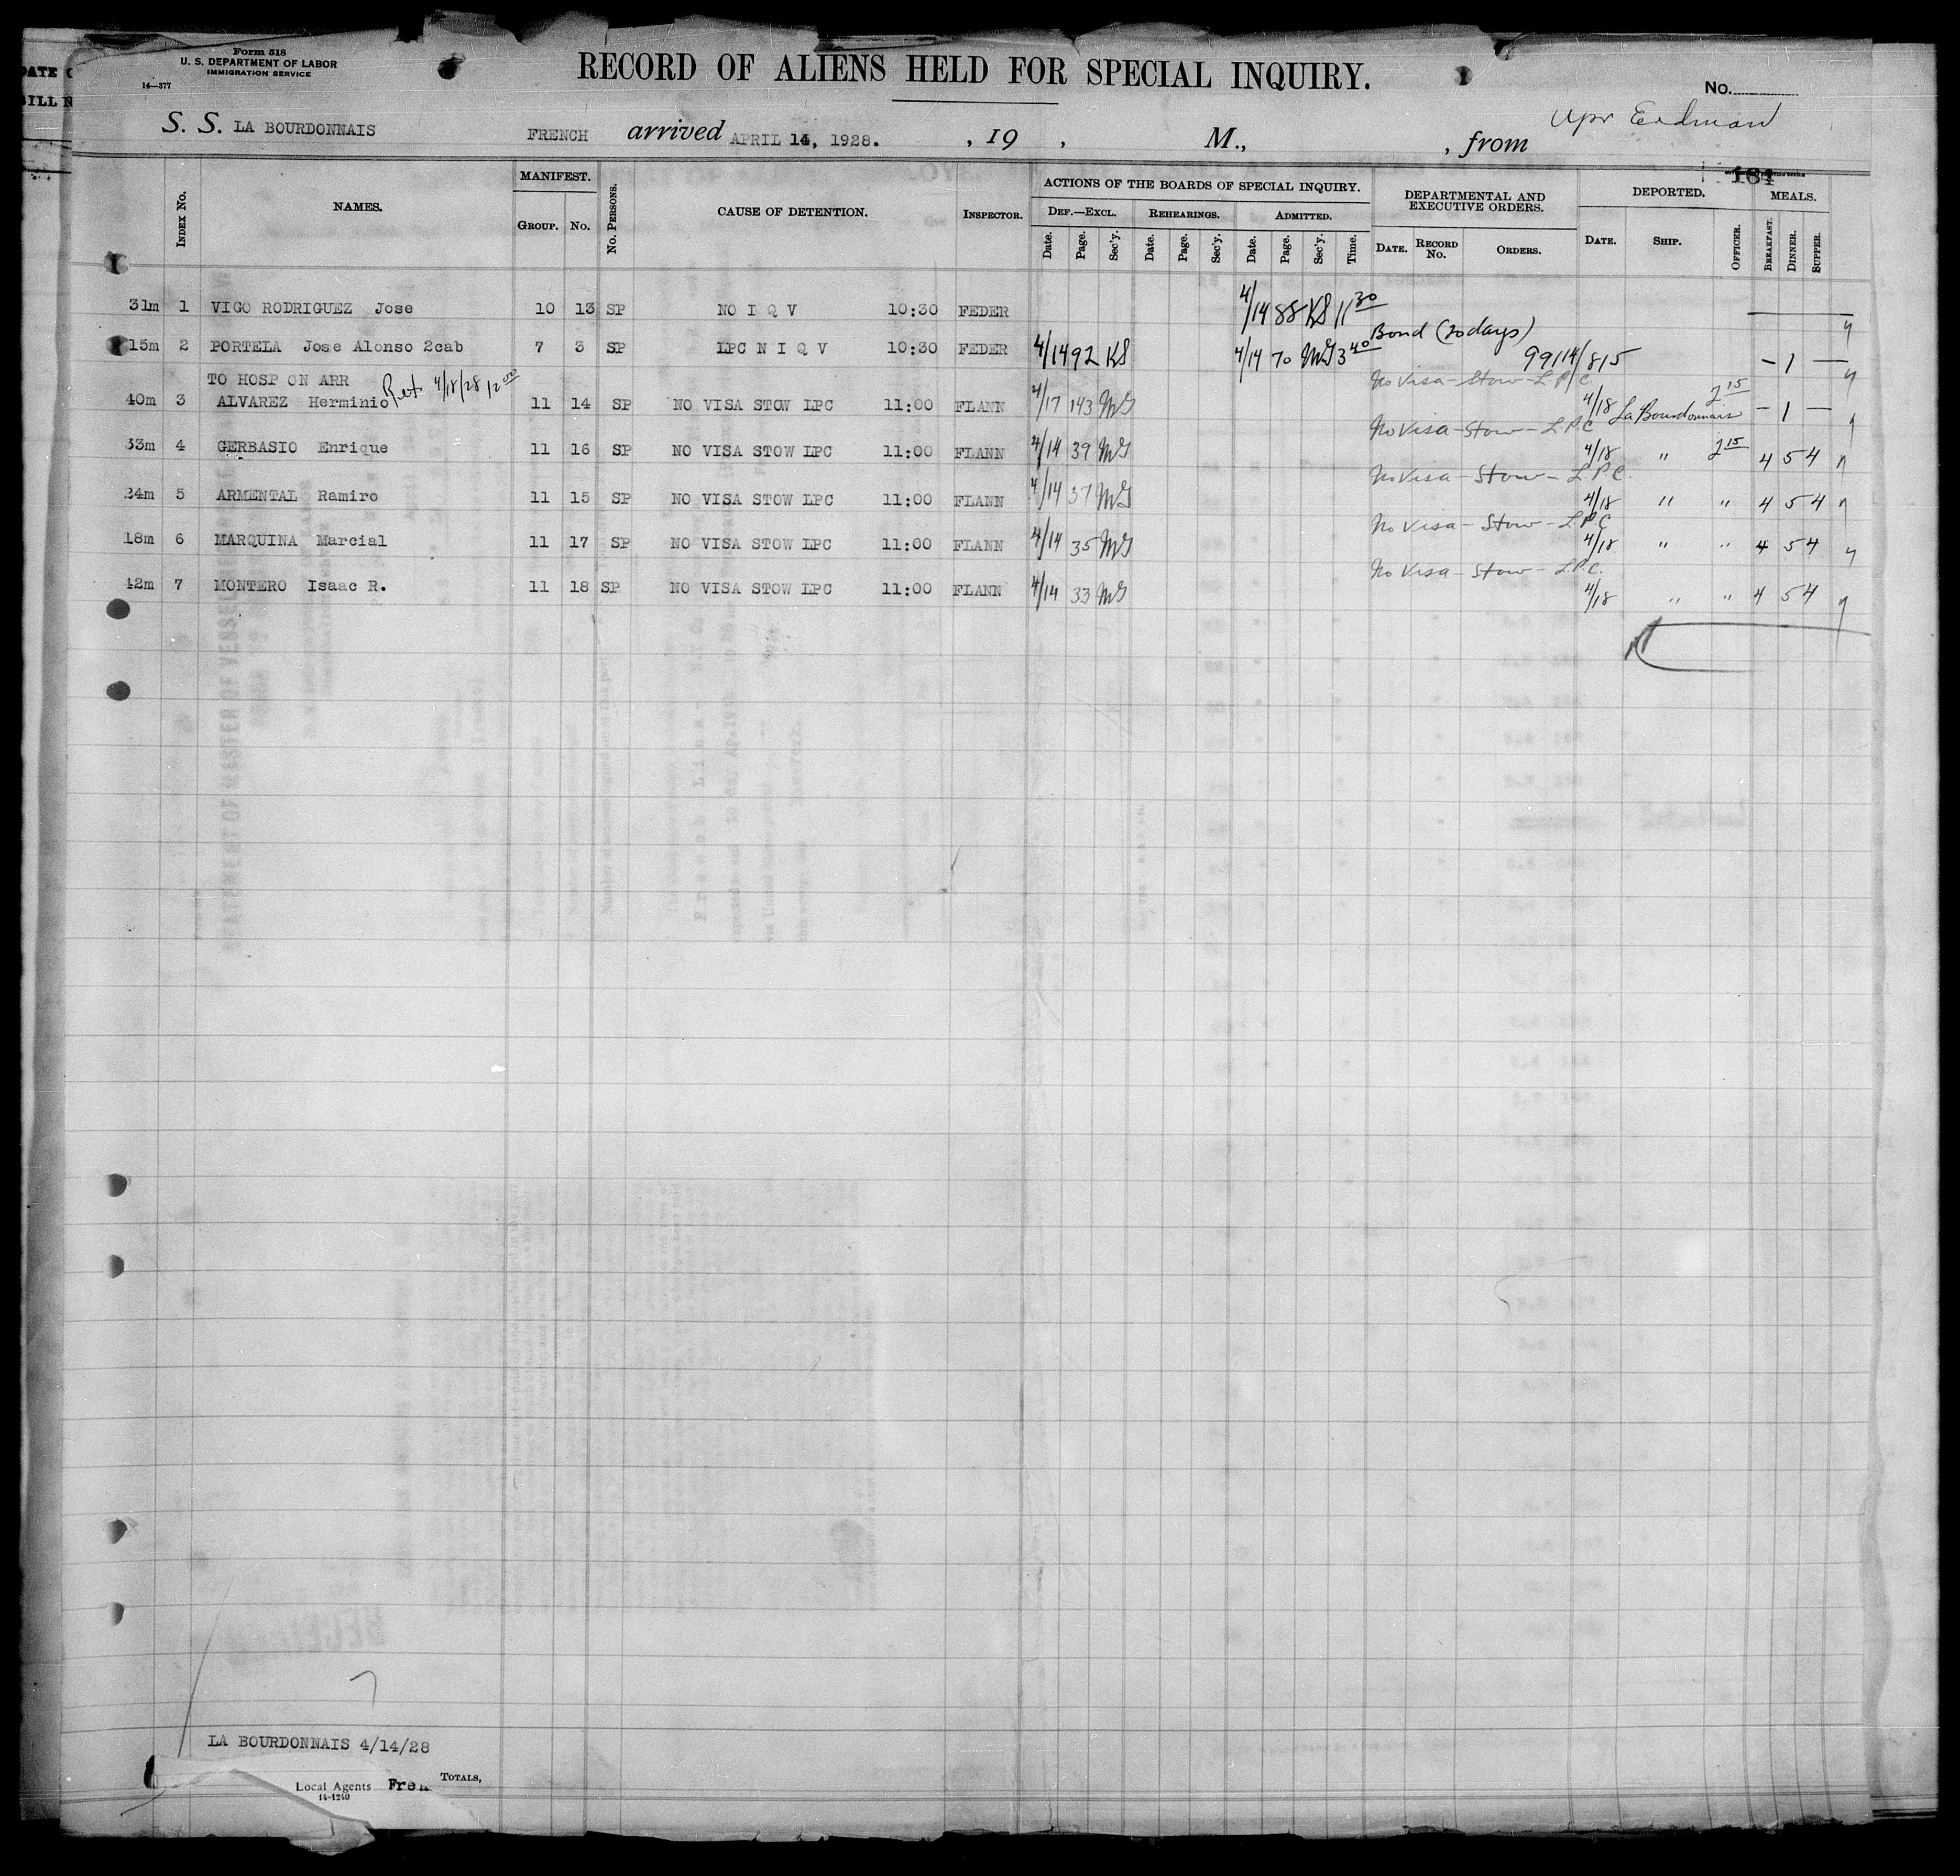 DATE
BILL N
Form 518
U. S. DEPARTMENT OF LABOR
IMMIGRATION SERVICE
14—377
RECORD OF ALIENS HELD FOR SPECIAL INQUIRY.
No.
S. S. LA BOURDONNAIS FRENCH arrived APRIL 14, 1928. , 19 , M., , from
184
INDEX NO. NAMES. MANIFEST. GROUP. NO. NO. PERSONS. CAUSE OF DETENTION. INSPECTOR. ACTIONS OF THE BOARDS OF SPECIAL INQUIRY. DEPARTMENTAL AND EXECUTIVE ORDERS. DEPORTED. MEALS.
DEF.—EXCL. REHEARINGS. ADMITTED.
Date. Page. Sec'y. Date. Page. Sec'y. Date. Page. Sec'y. Time. DATE. RECORD NO. ORDERS. DATE. SHIP. OFFICER. BREAKFAST. DINNER. SUPPER.
31m 1 VIGO RODRIGUEZ Jose 10 13 SP NO I Q V 10:30 FEDER 4/14 88 KS 11 30
Bond (20 days)
15m 2 PORTELA Jose Alonso 2cab 7 3 SP LPC N I Q V 10:30 FEDER 4/14 92 KS 4/14 70 MG 3 40 99114/815 – 1 –
TO HOSP ON ARR Ret 4/18/28 12 00 No Visa – Stow – L.P.C
40m 3 ALVAREZ Herminio 11 14 SP NO VISA STOW LPC 11:00 FLANN 4/17 143 MG 4/18 La Bourdonnais 2 15 – 1 –
No Visa – Stow – L.P.C
33m 4 GERBASIO Enrique 11 16 SP NO VISA STOW LPC 11:00 FLANN 4/14 39 MG 4/18 " 2 15 4 5 4
No Visa – Stow – L.P.C.
24m 5 ARMENTAL Ramiro 11 15 SP NO VISA STOW LPC 11:00 FLANN 4/14 37 MG 4/18 " " 4 5 4
No Visa – Stow – LPC
18m 6 MARQUINA Marcial 11 17 SP NO VISA STOW LPC 11:00 FLANN 4/14 35 MG 4/18 " " 4 5 4
No Visa – Stow – LPC.
42m 7 MONTERO Isaac R. 11 18 SP NO VISA STOW LPC 11:00 FLANN 4/14 33 MG 4/18 " " 4 5 4
LA BOURDONNAIS 4/14/28
Local Agents Fren TOTALS,
14-1240